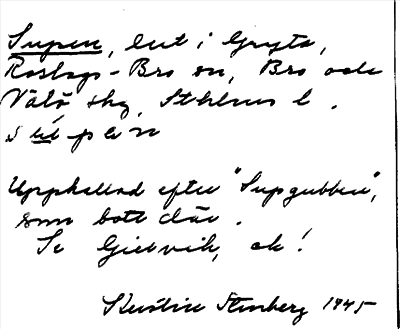 Supen, lut i Gryta,
Roslags-Bro sn, Bro och
Vätö skg, Sthlms l.
sùpen
Uppkallad efter "Supgubben",
som bott där.
Se Giervik, ek!
Kerstin Stenberg 1945